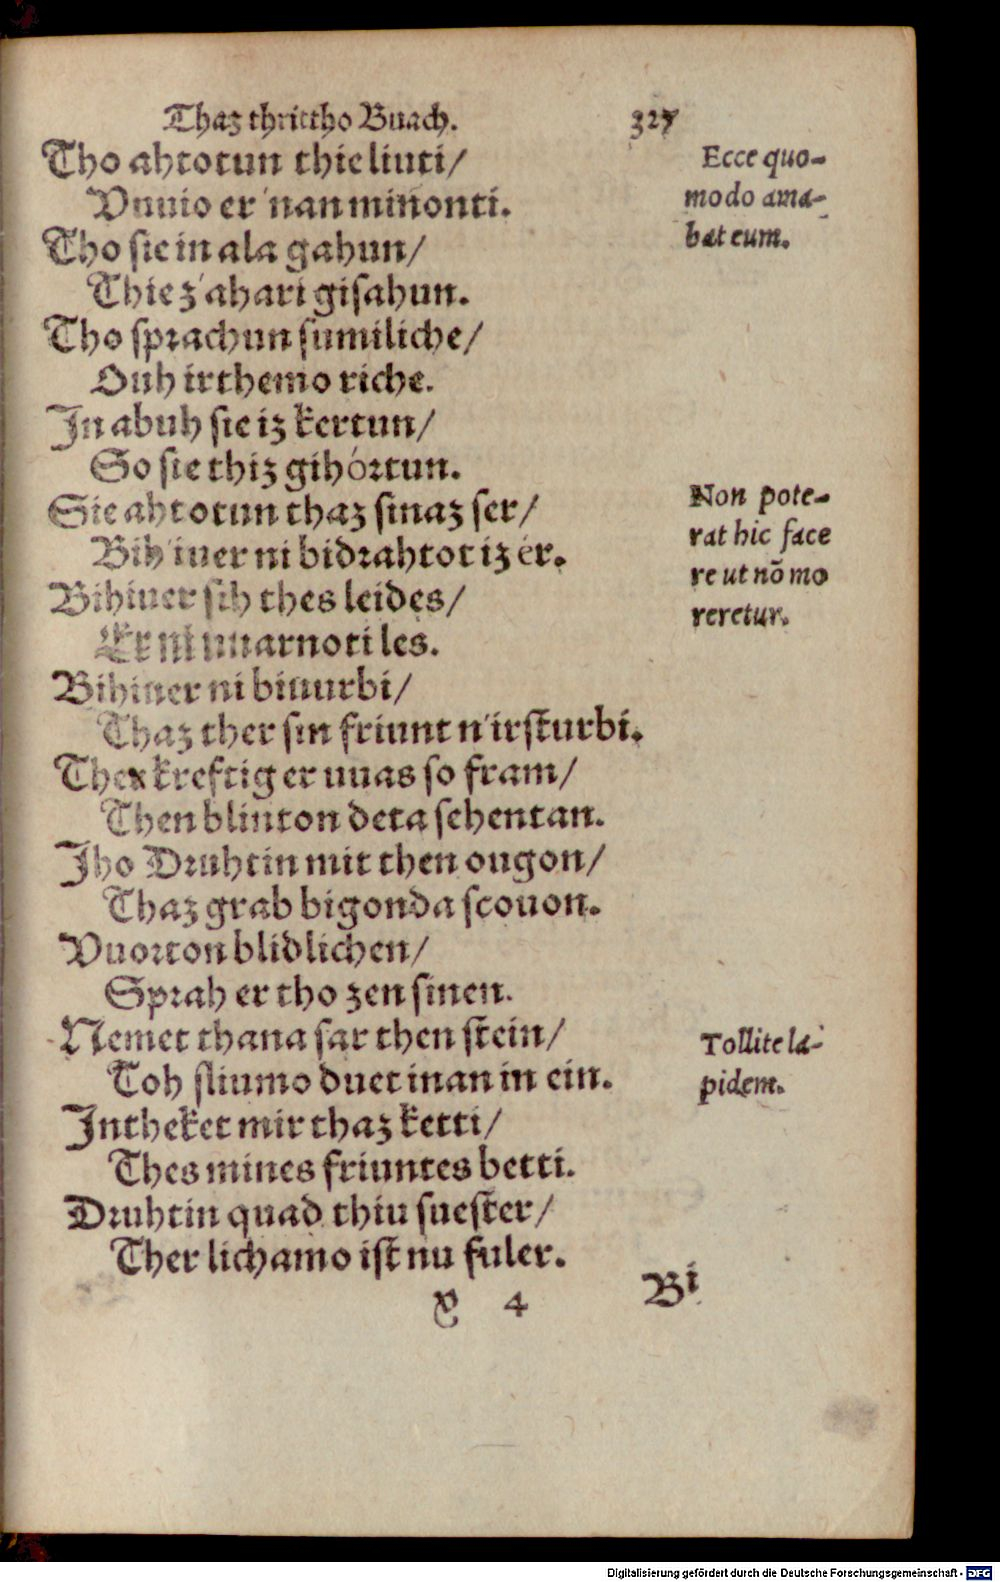 Thaz thrittho Buach. 327
Tho ahtotun thie liuti/
Vuuio er'nan minonti.
Tho sie in ala gahun/
Thie z'ahari gisahun.
Tho sprachun sumiliche/
Ouh irthemo riche.
In abuh sie iz kertun/
So sie thiz gihórtun.
Sie ahtotun thaz sinaz ser/
Bih'iuer ni bidrahtot iz ér.
Bihiuer sih thes leides/
Er ni uuarnoti les.
Bihiuer ni biuurbi/
Thaz ther sin friunt n'irsturbi.
Ther kreftig er uuas so fram/
Then blinton deta sehentan.
Iho Druhtin mit then ougon/
Thaz grab bigonda scouon.
Vuorton blidlichen/
Sprah er tho zen sinen.
Nemet thana sar then stein/
Toh sliumo duet inan in ein.
Intheket mir thaz ketti/
Thes mines friuntes betti.
Druhtin quad thiu suester/
Ther lichamo ist nu fuler.
Ecce quo-
modo ama-
bat eum.
Non pote-
rat hic face
re ut nō mo
reretur.
Tollite la-
pidem.
4 Bi
Digitalisierung gefördert durch die Deutsche Forschungsgemeinschaft - DFG